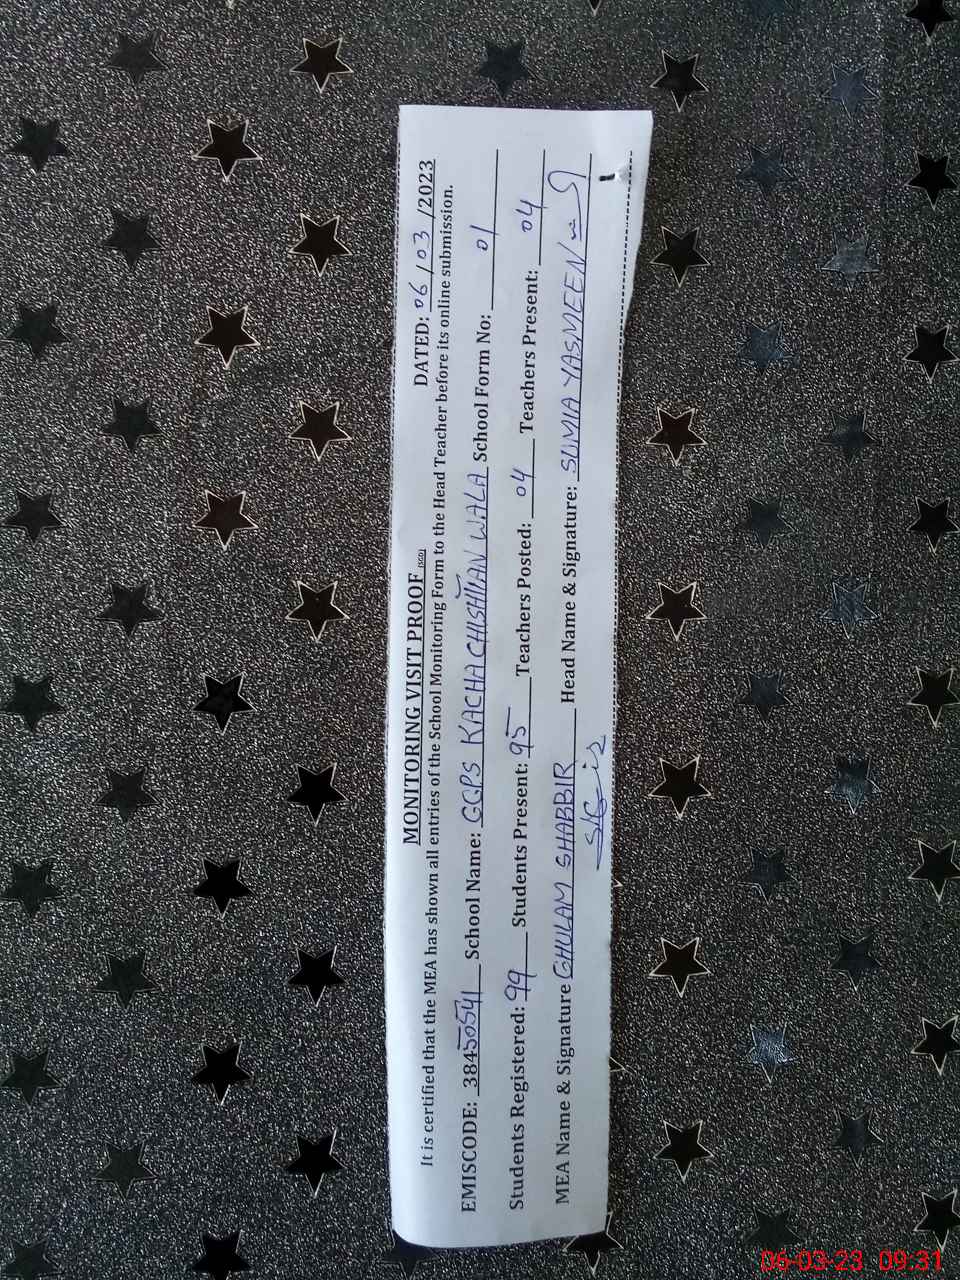 MONITORING VISIT PROOF (SGD) DATED: 06/03/2023
It is certified that the MEA has shown all entries of the School Monitoring Form to the Head Teacher before its online submission.
EMISCODE: 38450541 School Name: GGPS KACHA CHISHTIAN WALA School Form No: 01
Students Registered: 99 Students Present: 95 Teachers Posted: 04 Teachers Present: 04
MEA Name & Signature GHULAM SHABBIR Head Name & Signature: SUMIA YASMEEN
06-03-23 09:31